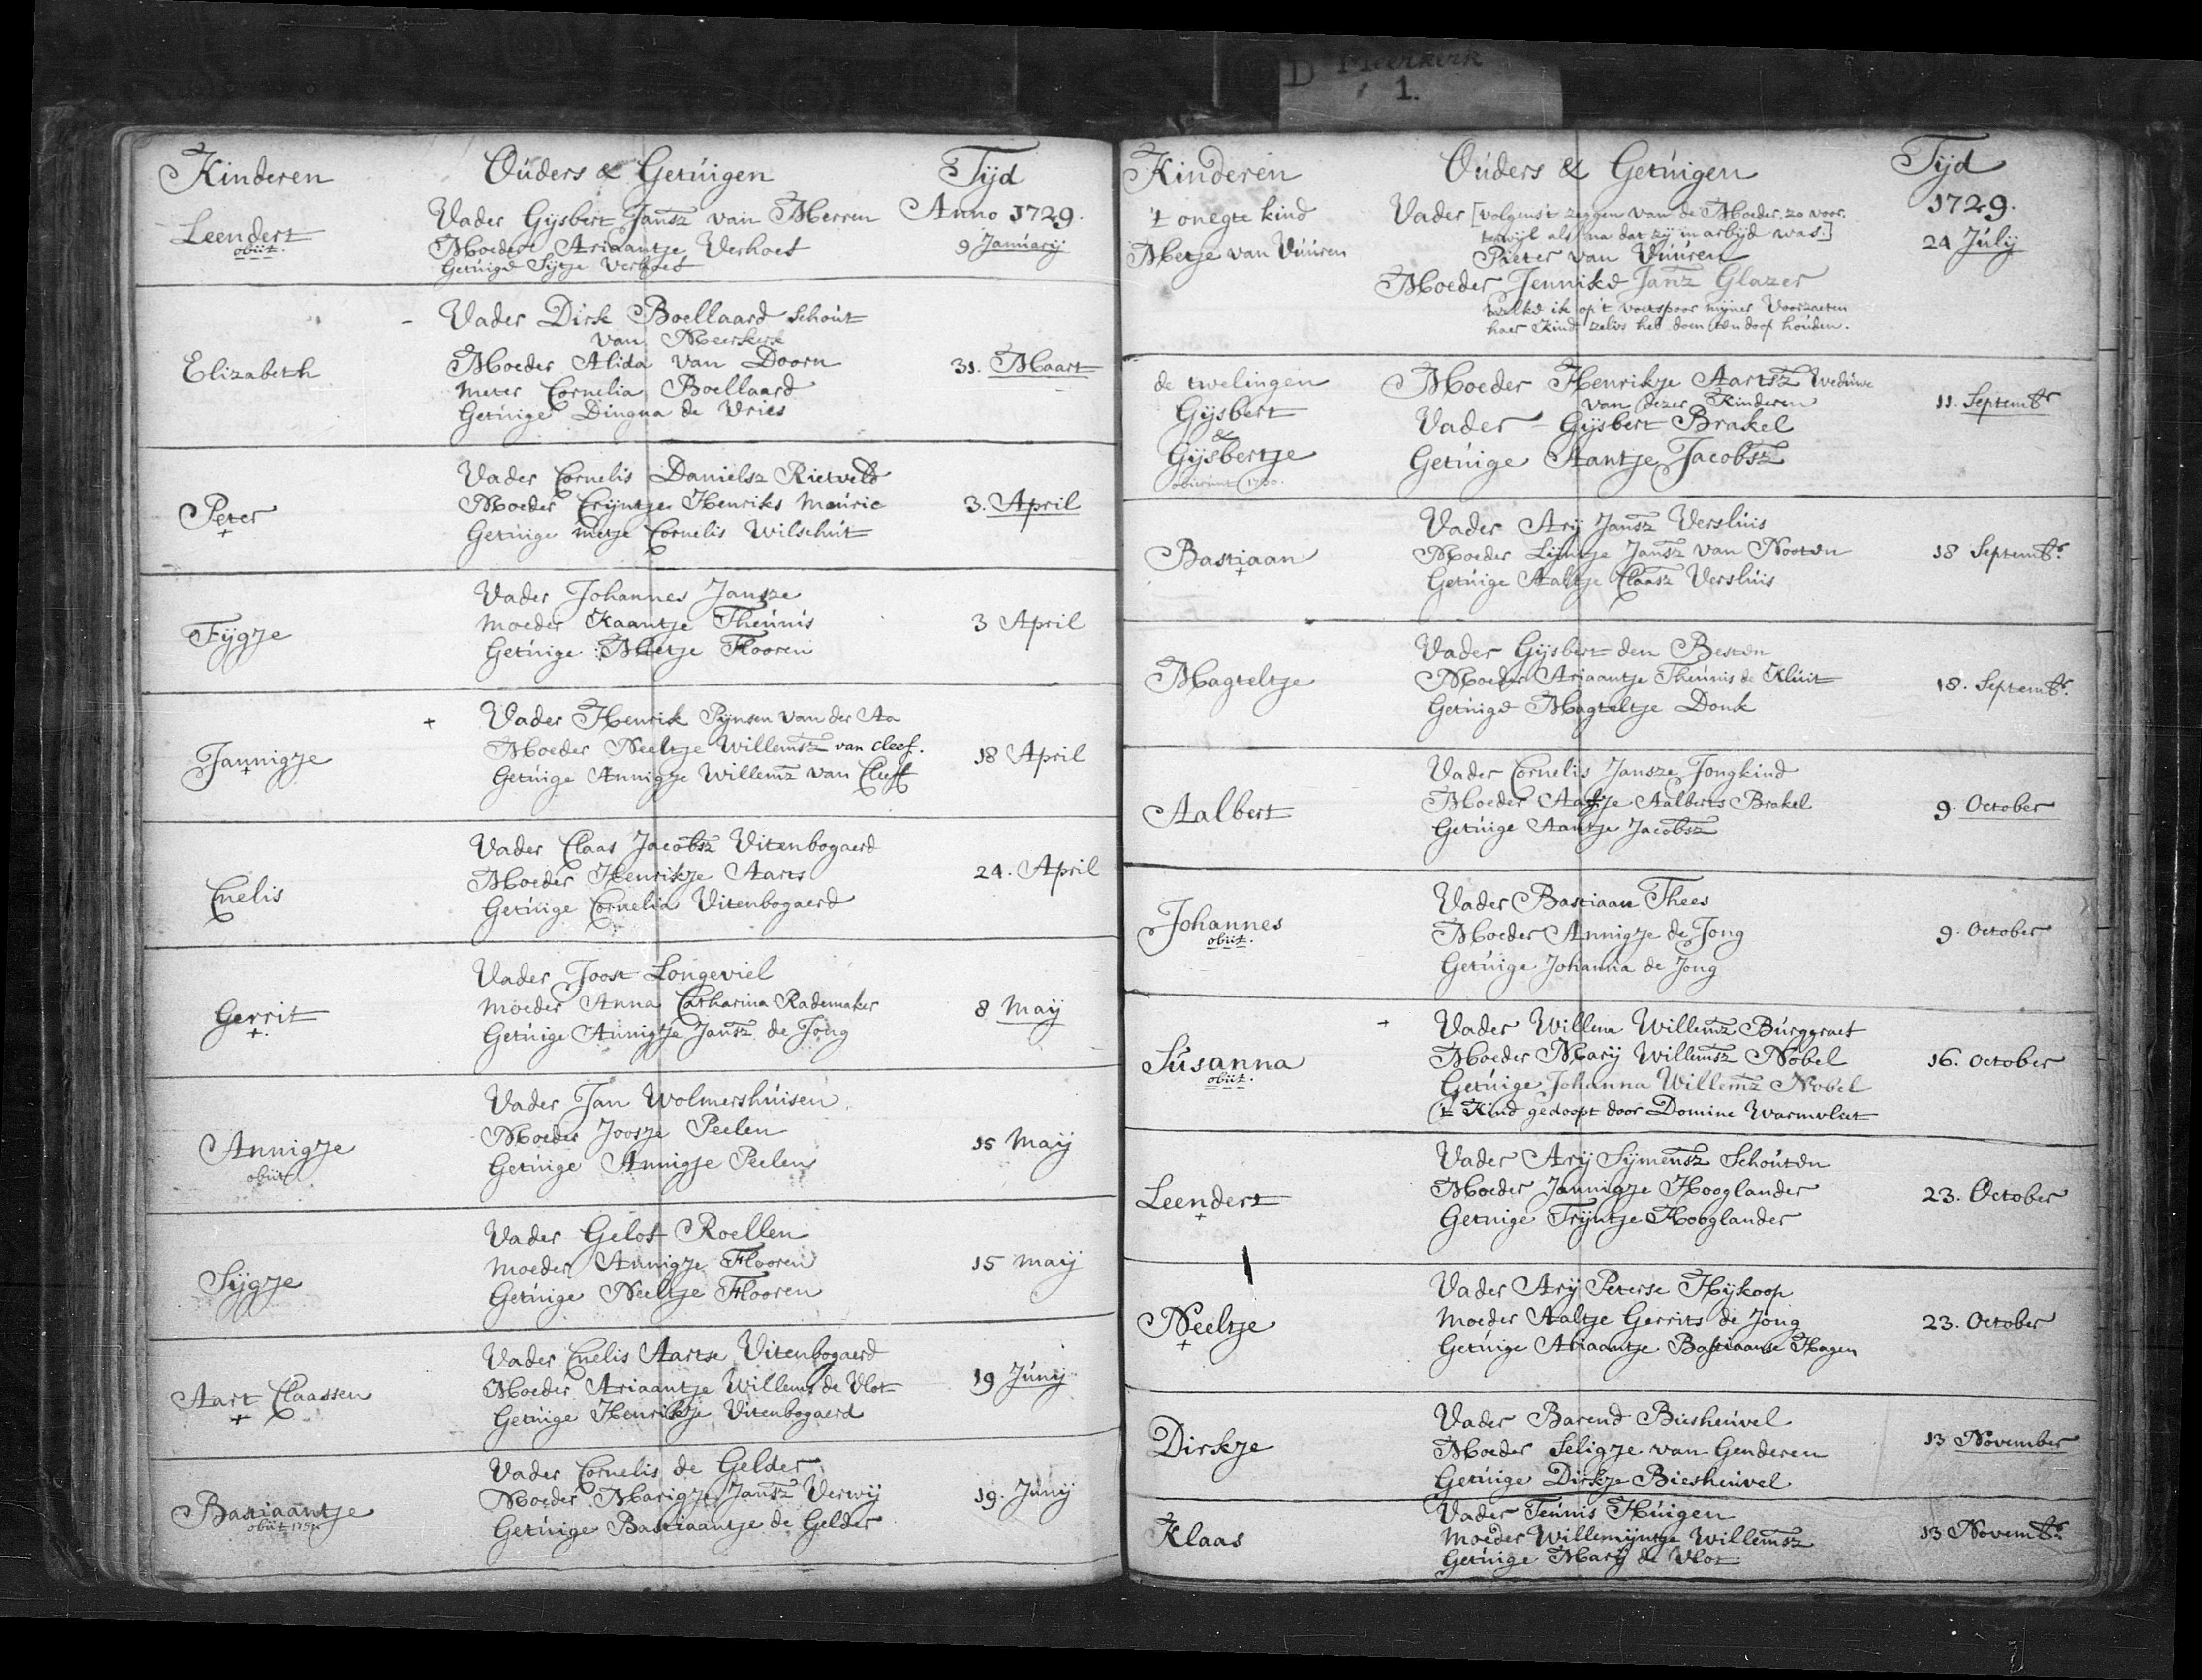 D Meerkerk
1.
Kinderen Ouders & Getuigen Tijd
Leendert Vader Gijsbert Jansz van Merren Anno 1729.
obiit. Moeder Ariaantje Verhoef 9 Januarij
Getuige Sijtje Verhoef
- Vader Dirk Boellaard Schout
van Meerkerk
Elizabeth Moeder Alida van Doorn 31. Maart
meter Cornelia Boellaard
Getuige Dingna de Vries
Vader Cornelis Danielsz Rietveld
Peter Moeder Crijntje Henriks Meuric 3. April
+ Getuige metje Cornelis Wilschut
Vader Johannes Jansze
Fijgje moeder Kaantje Theunis 3 April
Getuige Metje Flooren
+ Vader Henrik Pijnsen van der Aa
Jannigje Moeder Neeltje Willemsz van Cleef. 18 April
+ Getuige Annigje Willemz van Cleeff
Vader Claas Jacobsz Vitenbogaerd
Cnelis Moeder Henrikje Aarts 24. April
Getuige Cornelia Vitenbogaerd
Vader Joost Longeviel
Gerrit moeder Anna Catharina Rademaker 8 Maij
+. Getuige Annigje Jansz de Jong
Vader Jan Wolmershuisen
Annigje Moeder Joosje Peelen 15 Maij
obiit Getuige Annigje Peelen
Vader Gelof Roellen
Sijgje moeder Annigje Flooren 15 maij
Getuige Neeltje Flooren
Vader Cnelis Aartse Vitenbogaerd
Aart Claassen Moeder Ariaantje Willems de Vlot 19 Junij
+ Getuige Henrikje Vitenbogaerd
Vader Cornelis de Gelder
Bastiaantje Moeder Marigje Jansz Verwij 19. Junij
obiit Getuige Bastiaantje de Gelder
Kinderen Ouders & Getuigen Tijd
't onegte kind Vader [volgens't zeggen van de Moeder. zo voor. 1729.
terwijl als na dat zij in arbijd was.] 24 Julij
Metje van Vuuren Pieter van Vuuren
Moeder Jennike Janz Glazer
welke ik op't voetspoor mijner Voorzaeten
haer Kind zelvs heb doen ten doop houden.
de twelingen Moeder Henrikje Aartsz Weduwe
van dezer Kinderen 11. Septembr
Gijsbert Vader - Gijsbert Brakel
&
Gijsbertje Getuige Aantje Jacobsz
obierunt 1730.
Vader Arij Jansz Versluis
Bastiaan Moeder Lijntje Jansz van Nooten 18 Septembr.
+ Getuige Aaltje Claasz Versluis
Vader Gijsbert den Besten
Magteltje Moeder Ariaantje Theunis de Kluit 18. Septembr.
Getuige Magteltje Donk
Vader Cornelis Jansze Jongkind
Aalbert Moeder Aafje Aalberts Brakel 9. October
Getuige Aantje Jacobsz
Vader Bastiaan Thees
Johannes Moeder Annigje de Jong 9. October
obiit. Getuige Johanna de Jong
+ Vader Willem Willemz Burggraef
Susanna Moeder Marij Willemsz Nobel 16. October
obiit. Getuige Johanna Willemz Nobel
't Kind gedoopt door Domine Warmvliet
Vader Arij Sijmensz Schouten
Leendert Moeder Jannigje Hooglander 23. October
+ Getuige Trijntje Hooglander
Vader Arij Peterse Hijkoop
Neeltje moeder Aaltje Gerrits de Jong 23. October
+ Getuige Ariaantje Bastiaanse Hagen
Vader Barend Biesheuvel
Dirkje Moeder Seligje van Genderen 13 November
Getuige Dirkje Biesheuvel
Vader Teunis Huigen
Klaas moeder Willemijntje Willemsz 13 Novembr.
Getuige Marij de Vlot